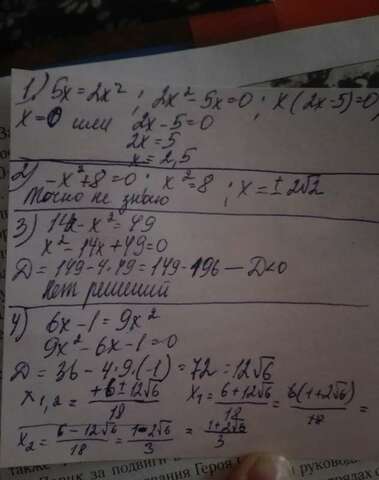 1) 5x = 2x² ; 2x² - 5x = 0 ; x(2x-5)=0
x = 0 или 2x - 5 = 0
2x = 5
x = 2,5
2) -x² + 8 = 0 ; x² = 8 ; x = ± 2√2
Точно не знаю
3) 14x - x² = 49
x² - 14x + 49 = 0
D = 149 - 4·49 = 149 - 196 — D<0
Нет решений
4) 6x - 1 = 9x²
9x² - 6x - 1 = 0
D = 36 - 4·9·(-1) = 72 = 12√6
x1,2 = +6 ± 12√6 / 18 x1 = 6 + 12√6 / 18 = 6(1 + 2√6) / 18 =
x2 = 6 - 12√6 / 18 = 1 - 2√6 / 3 = 1 + 2√6 / 3
также
за подвиги в руково
вания Героя С